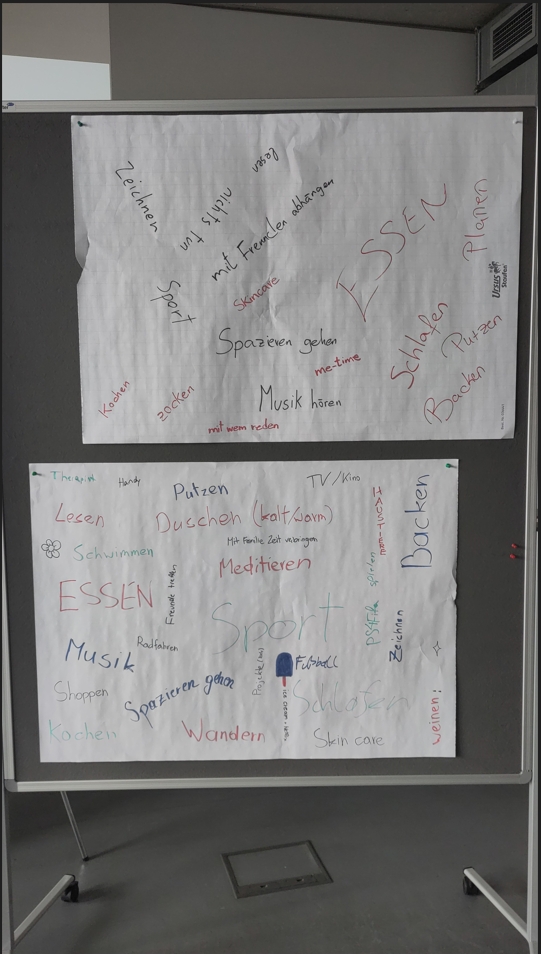 Zeichnen
nichts tun
dösen
mit Freunden abhängen
ESSEN
Planen
Sport
Skincare
Spazieren gehen
Schlafen
Putzen
me-time
Backen
Kochen
zocken
Musik hören
mit wem reden
Therapie
Handy
Putzen
TV/Kino
HAUSTIERE
Backen
Lesen
Duschen (kalt/warm)
Mit Familie Zeit verbringen
Schwimmen
Meditieren
ESSEN
Freunde treffen
Sport
PS4/Filme spielen
Zeichnen
Musik
Radfahren
Fußball
Shoppen
Spazieren gehen
Schlafen
weinen:
Kochen
Wandern
Skin care